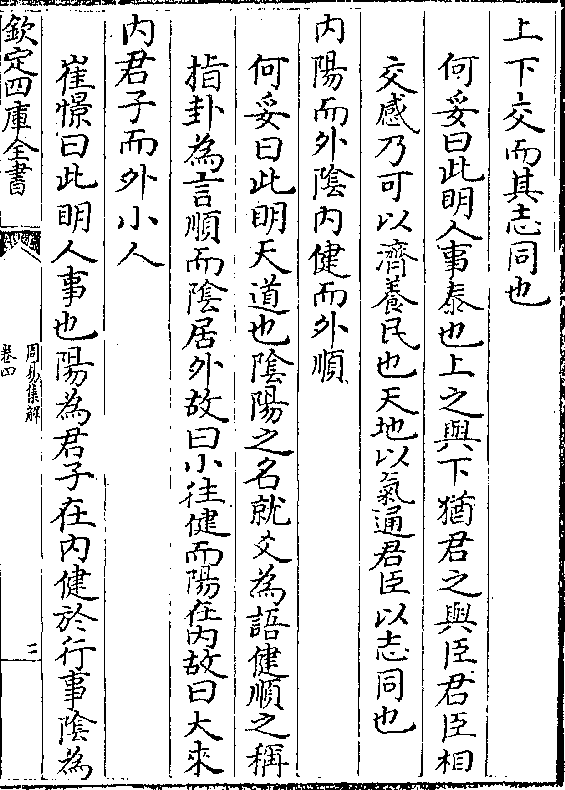 上下交而其志同也
何妥曰此明人事泰也上之與下猶君之與臣君臣相
交感乃可以濟養民也天地以氣通君臣以志同也
内陽而外陰内健而外順
何妥曰此明天道也陰陽之名就爻為語健順之稱
指卦為言順而陰居外故曰小往健而陽在内故曰大來
内君子而外小人
崔憬曰此明人事也陽為君子在内健於行事陰為
欽定四庫全書
周易集解
卷四
三